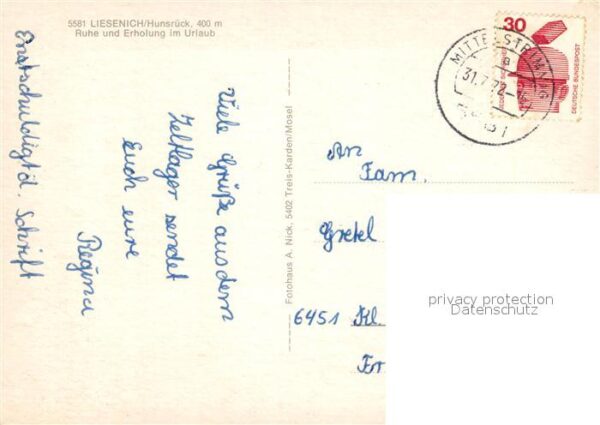 5581 LIESENICH/Hunsrück, 400 m
Ruhe und Erholung im Urlaub
Viele Grüße aus dem
Zeltlager sendet
Euch eure
Regina
Enstschuldigt d. Schrift
Fotohaus A. Nick, 5402 Treis-Karden/Mosel
30
DEUTSCHE BUNDESPOST
MITTELSTRIMMIG
a
31.7.72
An
Fam.
Gretel
6451 Kl.
privacy protection
Datenschutz